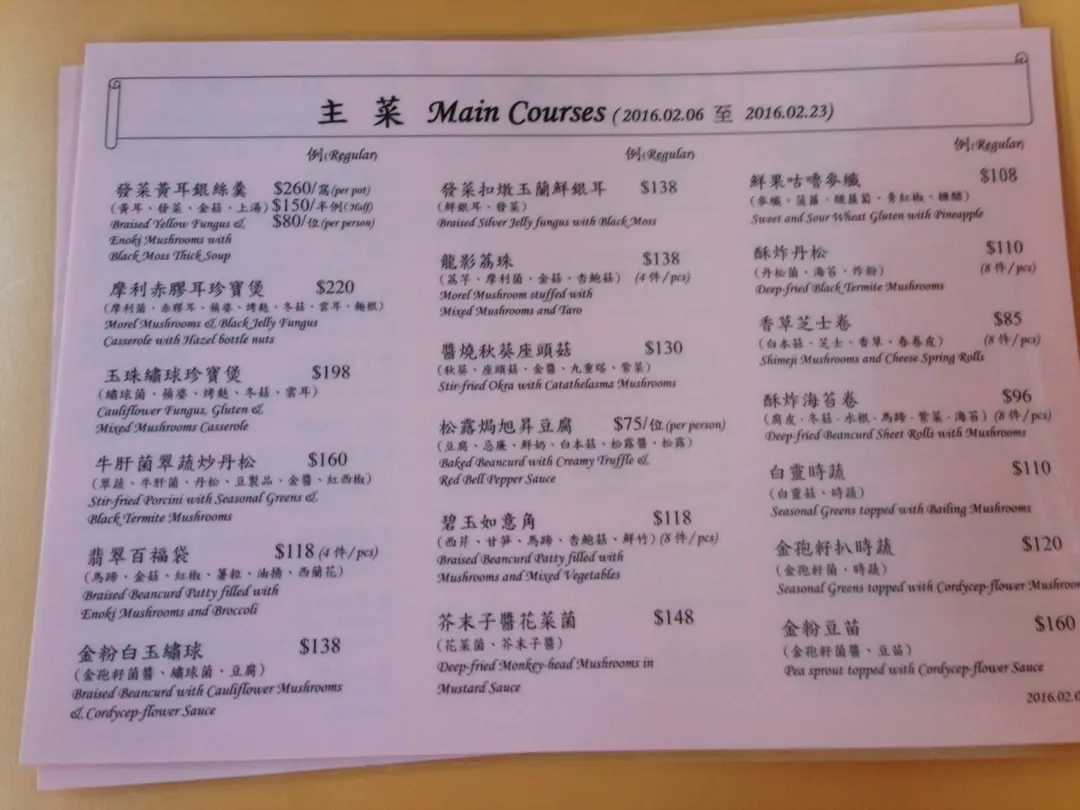 主 菜 Main Courses ( 2016.02.06 至 2016.02.23)
例(Regular)
發菜黃耳銀絲羹 $260/窩(per pot)
(黃耳、發菜、金菇、上湯) $150/半例(Half)
Braised Yellow Fungus & $80/位(per person)
Enoki Mushrooms with
Black Moss Thick Soup
摩利赤膠耳珍寶煲 $220
(摩利菌、赤膠耳、蘋婆、烤麩、冬菇、雲耳、麵根)
Morel Mushrooms & Black Jelly Fungus
Casserole with Hazel bottle nuts
玉珠繡球珍寶煲 $198
(繡球菌、蘋婆、烤麩、冬菇、雲耳)
Cauliflower Fungus, Gluten &
Mixed Mushrooms Casserole
牛肝菌翠蔬炒丹松 $160
(翠蔬、牛肝菌、丹松、豆製品、金醬、紅西椒)
Stir-fried Porcini with Seasonal Greens &
Black Termite Mushrooms
翡翠百福袋 $118 (4 件/pcs)
(馬蹄、金菇、紅椒、薯粒、油揚、西蘭花)
Braised Beancurd Patty filled with
Enoki Mushrooms and Broccoli
金粉白玉繡球 $138
(金孢籽菌醬、繡球菌、豆腐)
Braised Beancurd with Cauliflower Mushrooms
& Cordycep-flower Sauce
例(Regular)
發菜扣燉玉蘭鮮銀耳 $138
(鮮銀耳、發菜)
Braised Silver Jelly fungus with Black Moss
龍影荔珠 $138
(荔芋、摩利菌、金菇、杏鮑菇) (4 件/pcs)
Morel Mushroom stuffed with
Mixed Mushrooms and Taro
醬燒秋葵座頭菇 $130
(秋葵、座頭菇、金醬、九重塔、紫菜)
Stir-fried Okra with Catathelasma Mushrooms
松露焗旭昇豆腐 $75/位(per person)
(豆腐、忌廉、鮮奶、白本菇、松露醬、松露)
Baked Beancurd with Creamy Truffle &
Red Bell Pepper Sauce
碧玉如意角 $118
(西芹、甘筍、馬蹄、杏鮑菇、鮮竹) (8 件/pcs)
Braised Beancurd Patty filled with
Mushrooms and Mixed Vegetables
芥末子醬花菜菌 $148
(花菜菌、芥末子醬)
Deep-fried Monkey-head Mushrooms in
Mustard Sauce
例(Regular)
鮮果咕嚕麥纖 $108
(麥纖、菠蘿、酸蘿蔔、青紅椒、糖醋)
Sweet and Sour Wheat Gluten with Pineapple
酥炸丹松 $110
(丹松菌、海苔、炸粉) (8 件/pcs)
Deep-fried Black Termite Mushrooms
香草芝士卷 $85
(白本菇、芝士、香草、春卷皮) (8 件/pcs)
Shimeji Mushrooms and Cheese Spring Rolls
酥炸海苔卷 $96
(腐皮、冬菇、水根、馬蹄、紫菜、海苔) (8 件/pcs)
Deep-fried Beancurd Sheet Rolls with Mushrooms
白靈時蔬 $110
(白靈菇、時蔬)
Seasonal Greens topped with Bailing Mushrooms
金孢籽扒時蔬 $120
(金孢籽菌、時蔬)
Seasonal Greens topped with Cordycep-flower Mushroom
金粉豆苗 $160
(金孢籽菌醬、豆苗)
Pea sprout topped with Cordycep-flower Sauce
2016.02.0